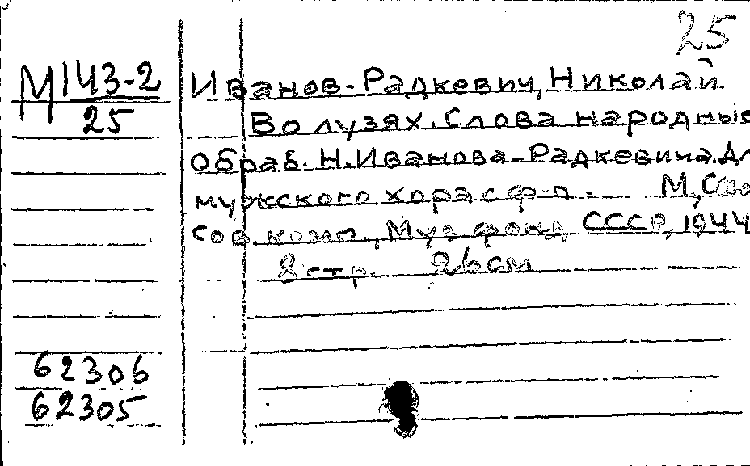 25
М143-2
25
Иванов-Радкевич, Николай
Во лузях. Слова народные
Обраб. Н. Иванова-Радкевича. Дл
мужского хора с ф-п. М, Сою
Сов. комп., Муз. фонд СССР, 1944
8 стр. 26 см
62306
62305